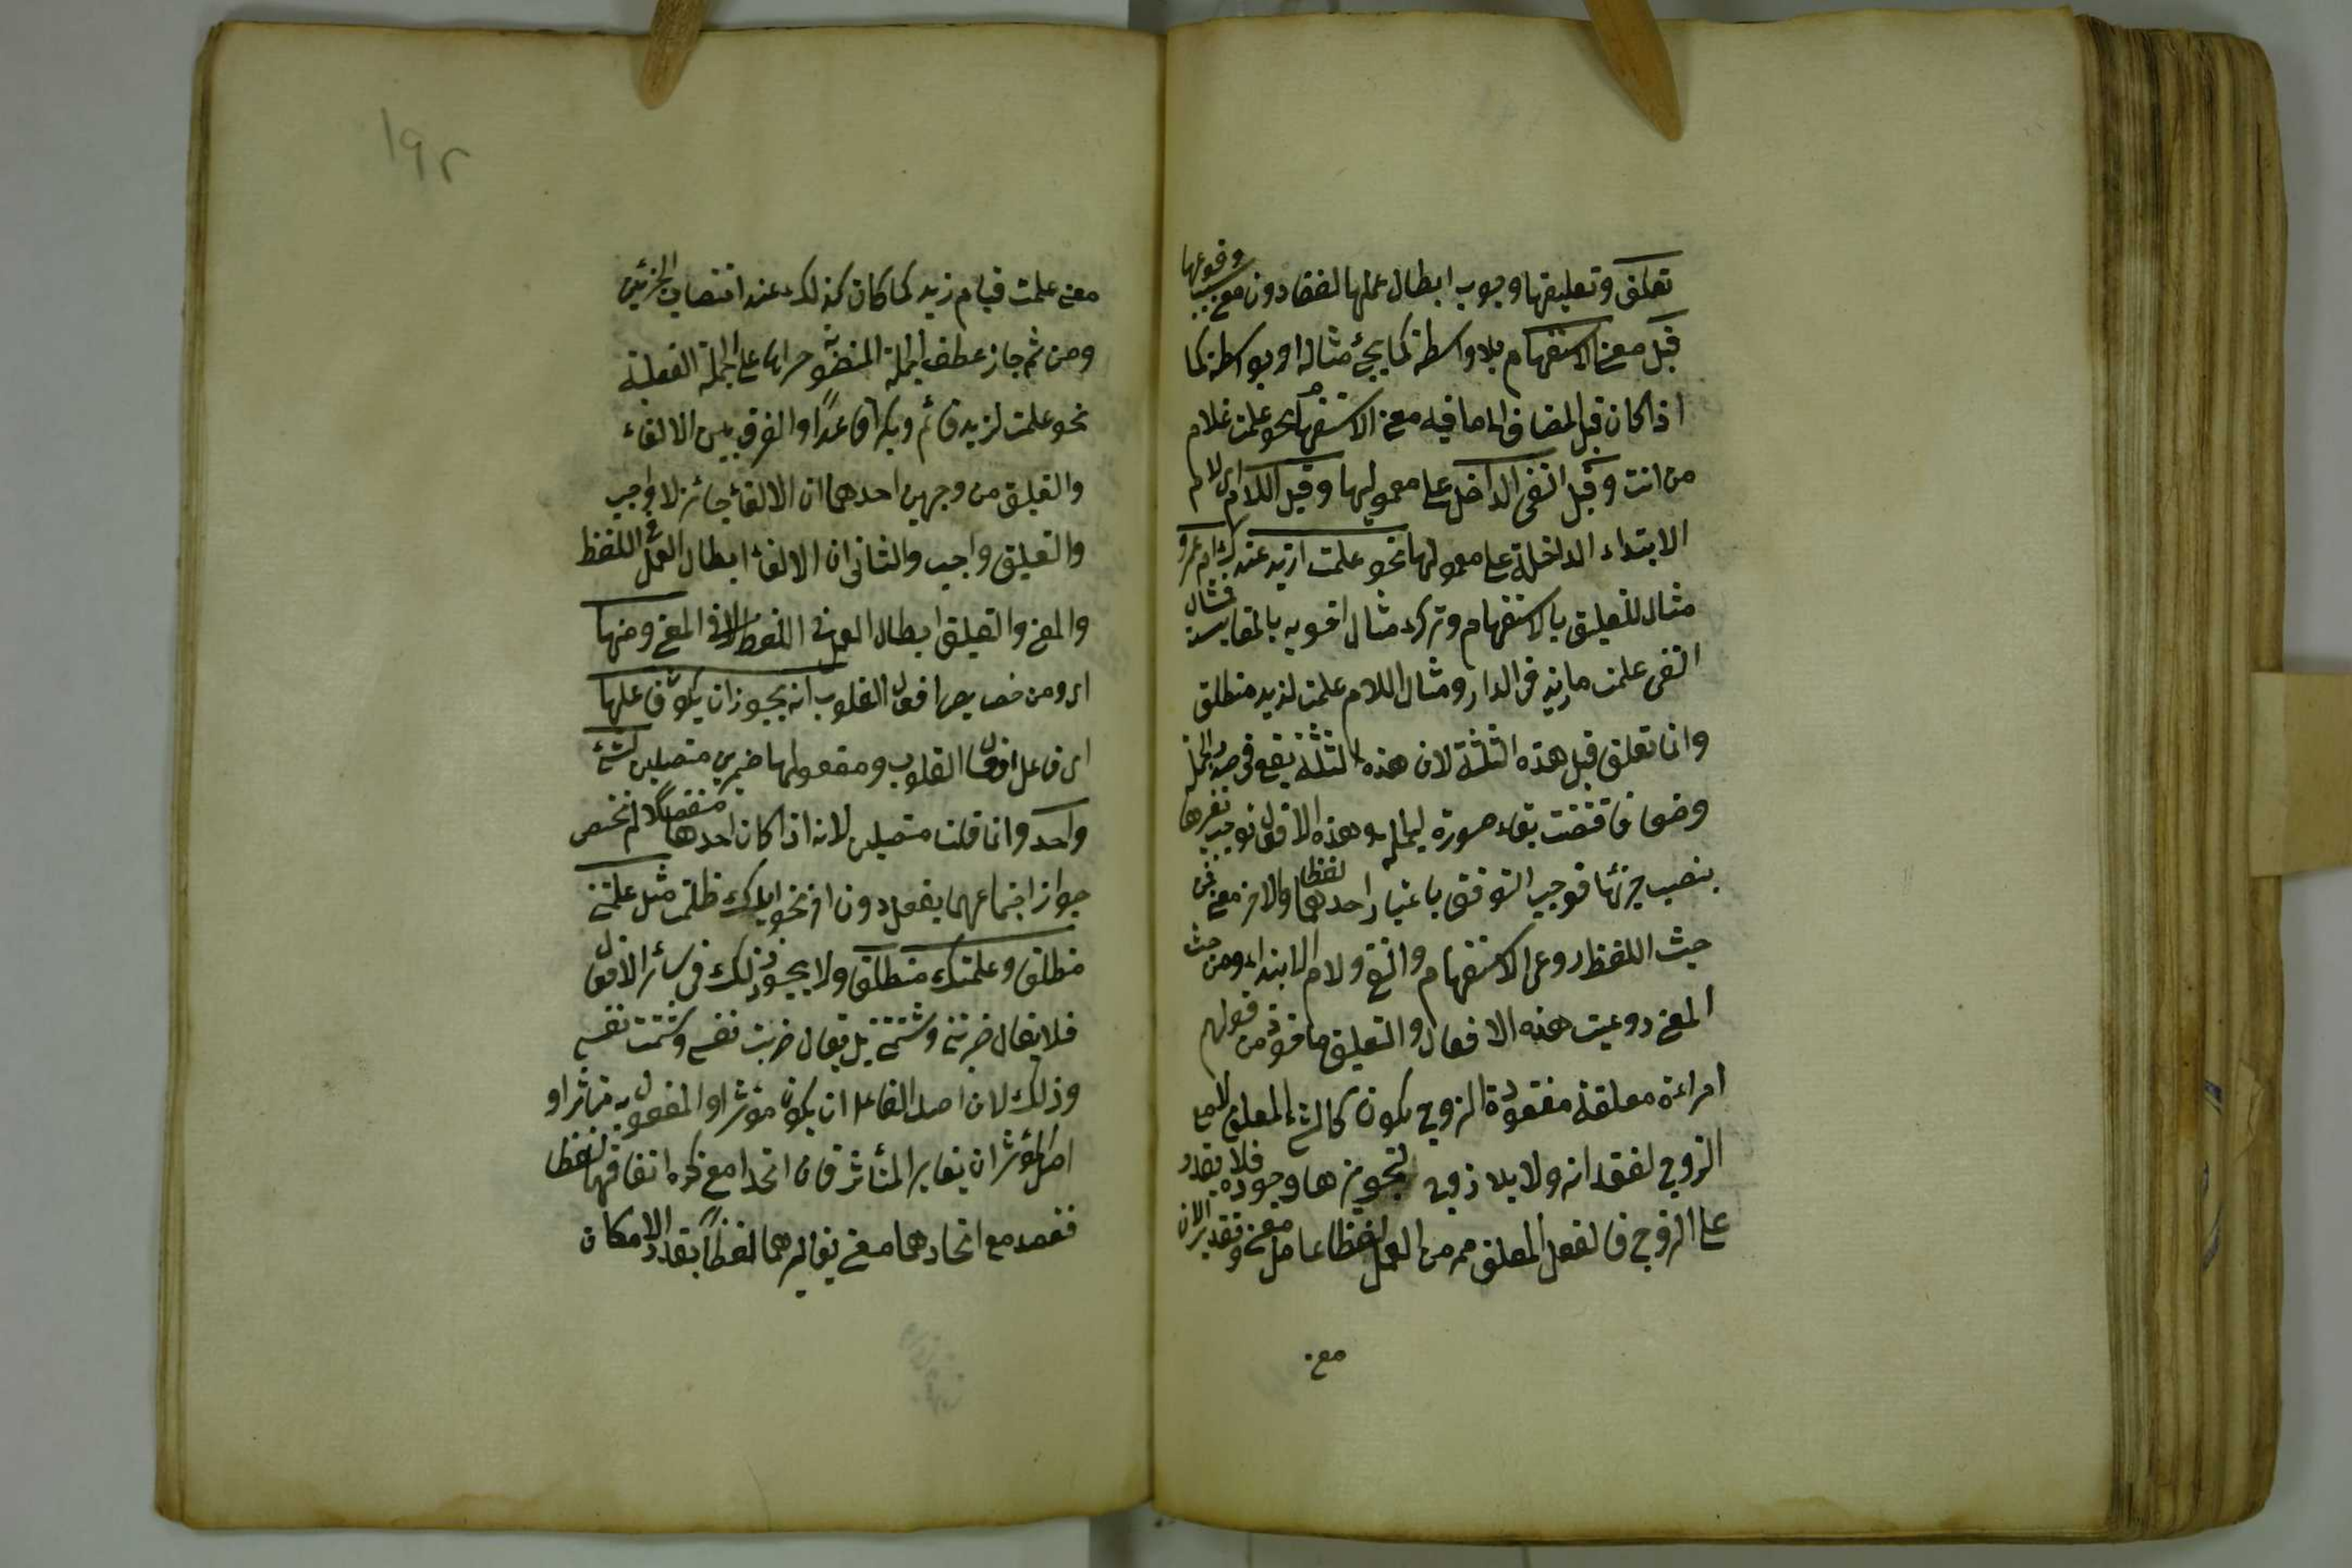 تعلق وتعليقها وجوب ابطال عملها لفظا دون معنى بسبب وقوعها
قبل معنى الاستفهام بلا واسطة كما يجئ مثاله او بواسطة كما
اذا كان قبل المضاف الى ما فيه معنى الاستفهام نحو علمت غلام
من انت وقبل النفى الداخل على معمولها وقبل اللام اى لام
الابتداء الداخلة على معمولها نحو علمت ازيد عندك ام عمرو
مثال للتعليق بالاستفهام وترك مثال اخويه بالمقايسة فمثال
النفى علمت ما زيد فى الدار ومثال اللام علمت لزيد منطلق
وانما تعلق قبل هذه الثلثة لان هذه الثلثة يقع فى صدر الجمل
وضعا فاقتضت بقاء صورة الجملة وهذه الافعال توجب تغيرها
بنصب جزئها فوجب التوفيق باعتبار احدهما لفظا والاخر معنى فمن
حيث اللفظ روعى الاستفهام والنفى ولام الابتداء ومن حيث
المعنى روعيت هذه الافعال والتعليق ماخوذ من قولهم
امراءة معلقة مفقودة الزوج يكون كالشئ المعلق لا مع
الزوج لفقدانه ولا بلا زوج لتجويزها وجوده فلا يقدر
على الزوج فالفعل المعلق ممر من العمل لفظا عامل معنى وتقدير الان
معنى
١٩٢
معنى علمت قيام زيد كما كان كذلك عند انتصاب الجزئين
ومن ثم جاز عطف الجملة المنصوبة جزاها على الجملة الفعلية
نحو علمت لزيد قائم وبكرا قاعدًا والفرق بين الالغاء
والتعليق من وجهين احدهما ان الالغاء جائز لا واجب
والتعليق واجب والثانى ان الالغاء ابطال العمل فى اللفظ
والمعنى والتعليق ابطال العمل فى اللفظ لا فى المعنى ومنها
اى ومن خصايص افعال القلوب انه يجوز ان يكون فاعلها
اى فاعل افعال القلوب ومفعولها ضميرين متصلين لشئ
واحد وانما قلنا متصلين لانه اذا كان احدهما منفصلا لم تختص
جواز اجتماعهما بفعل دون اخر نحو اياك ظلمت مثل علمتنى
منطلق وعلمتك منطلق ولا يجوز ذلك فى سائر الافعال
فلا يقال ضربتنى وشتمتنى بل يقال ضربت نفسى وشتمت نفسى
وذلك لان اصل الفاعل ان يكون مؤثرا والمفعول به متاثرا و
اصل المؤثر ان يغاير المتأثر فان اتحدا معنى كره اتفاقهما لفظا
فقصد مع اتحادهما معنى تغايرهما لفظًا بقدر الامكان